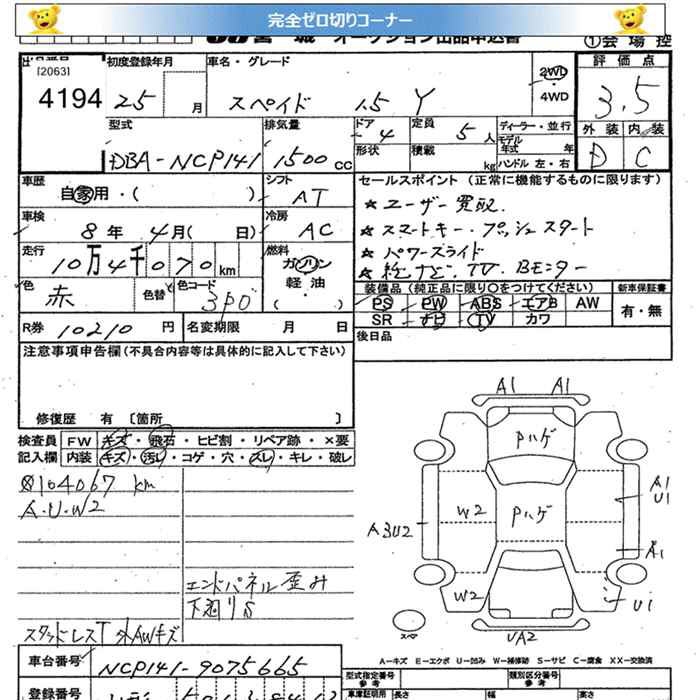 完全ゼロ切りコーナー
宮城 オークション出品申込書 ①会場控
[2063] 初度登録年月 車名・グレード 2WD 評価点
4194 25 月 スペイド 1.5 Y 4WD 3.5
型式 排気量 ドア 4 定員 5人 ディーラー・並行 外装 内装
DBA-NCP141 1500CC 形状 積載 kg モデル年式 年 D C
ハンドル 左・右
車歴 シフト セールスポイント (正常に機能するものに限ります)
自家用・( ) AT ★ユーザー買取
車検 冷房 ★スマートキー・プッシュスタート
8年 4月( 日) AC ★パワースライド
走行 燃料 ★純ナビ・TV・BEンター
10万4千070km ガソリン
軽油・( )
色 赤 色替 色コード 3P0
装備品 (純正品に限り〇をつけてください) 新車保証書
PS PW ABS エアB AW 有・無
SR ナビ TV カワ
R券 10210 円 名変期限 月 日 後日品
注意事項申告欄 (不具合内容等は具体的に記入して下さい)
修復歴 有 〔箇所 〕
検査員 FW キズ・飛石・ヒビ割・リペア跡・×要
記入欄 内装 キズ・汚レ・コゲ・穴・スレ・キレ・破レ
104067 km
A・U・W2
エンドパネル歪み
下廻りS
スタッドレスT 外AWキズ
A1 A1
Pハゲ
A1
U1
W2 Pハゲ
A3U2
A1
W2 U1
スペア
UA2
A−キズ E−エクボ U−凹み W−補修跡 S−サビ C−腐食 XX−交換済
車台番号 NCP141-9075665
型式指定番号 参考 類別区分番号 参考
登録番号
車庫証明用 長さ 幅 高さ